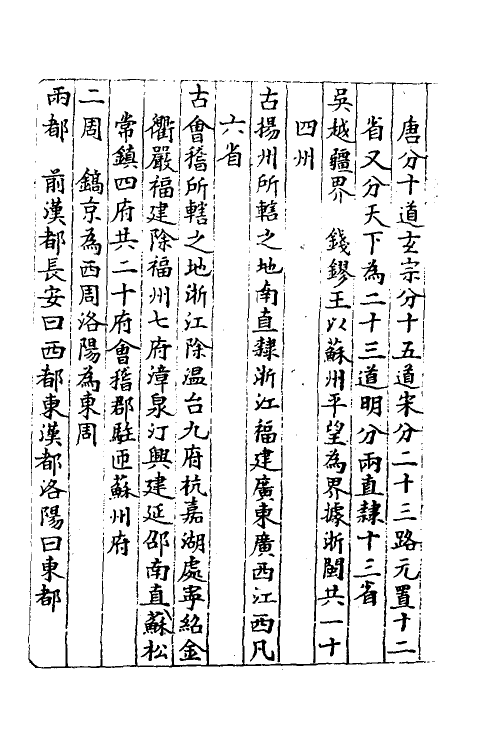 唐分十道玄宗分十五道宋分二十三路元置十二
省又分天下為二十三道明分兩直隸十三省
吳越疆界　錢鏐王以蘇州平望為界據浙閩共一十
四州
古揚州所轄之地南直隸浙江福建廣東廣西江西凡
六省
古會稽所轄之地浙江除温台九府杭嘉湖處寧紹金
衢嚴福建除福州七府漳泉汀興建延邵南直蘇松
常鎮四府共二十府會稽郡駐匝蘇州府
二周　鎬京為西周洛陽為東周
兩都　前漢都長安曰西都東漢都洛陽曰東都